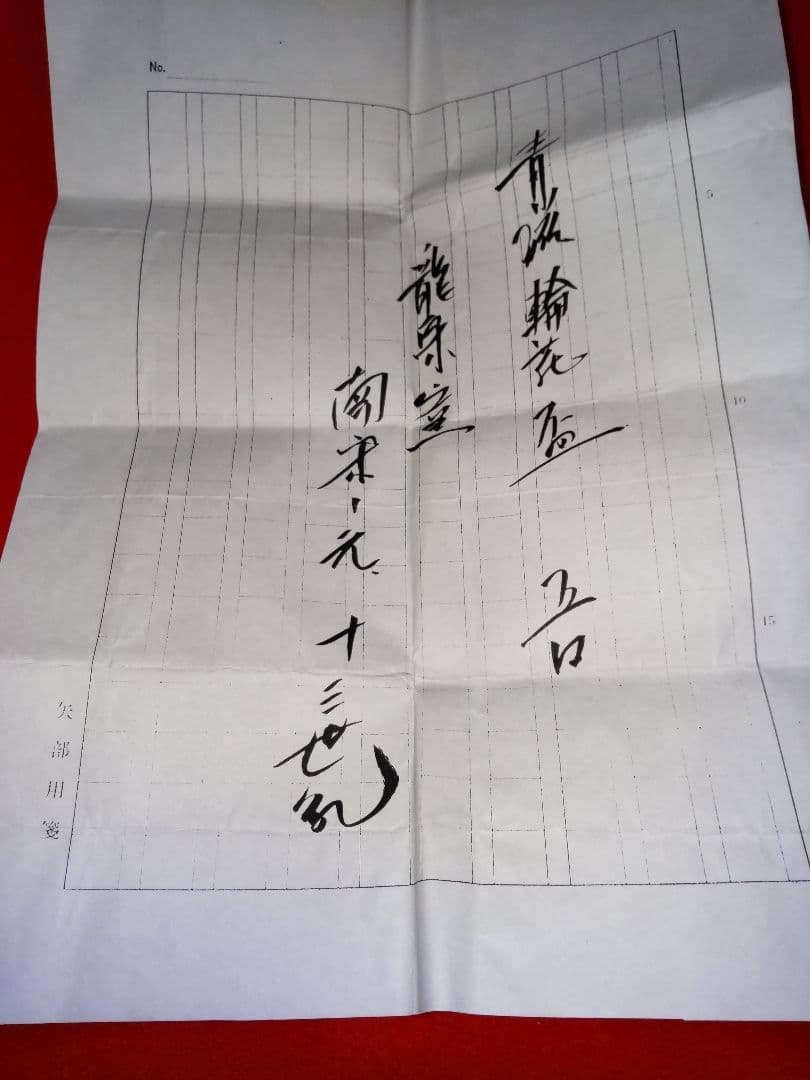 No.
青磁輪花盃 五口
龍泉窯
南宋、元、十三世紀
5
10
15
矢部用箋